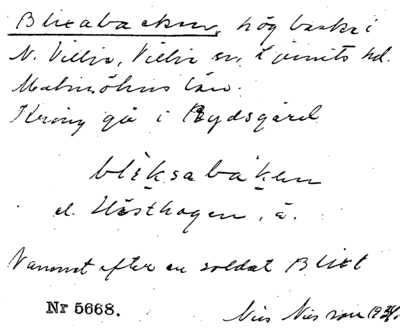 Blixabacken, hög backe i
N. Villie, Villie sn, Ljunits hd.
Malmöhus län.
Kring gå i Rydsgård
bleksabaken
el. Hästhagen, ä.
Namnet efter en soldat Blixt
Nr 5668.
Nils Nilsson